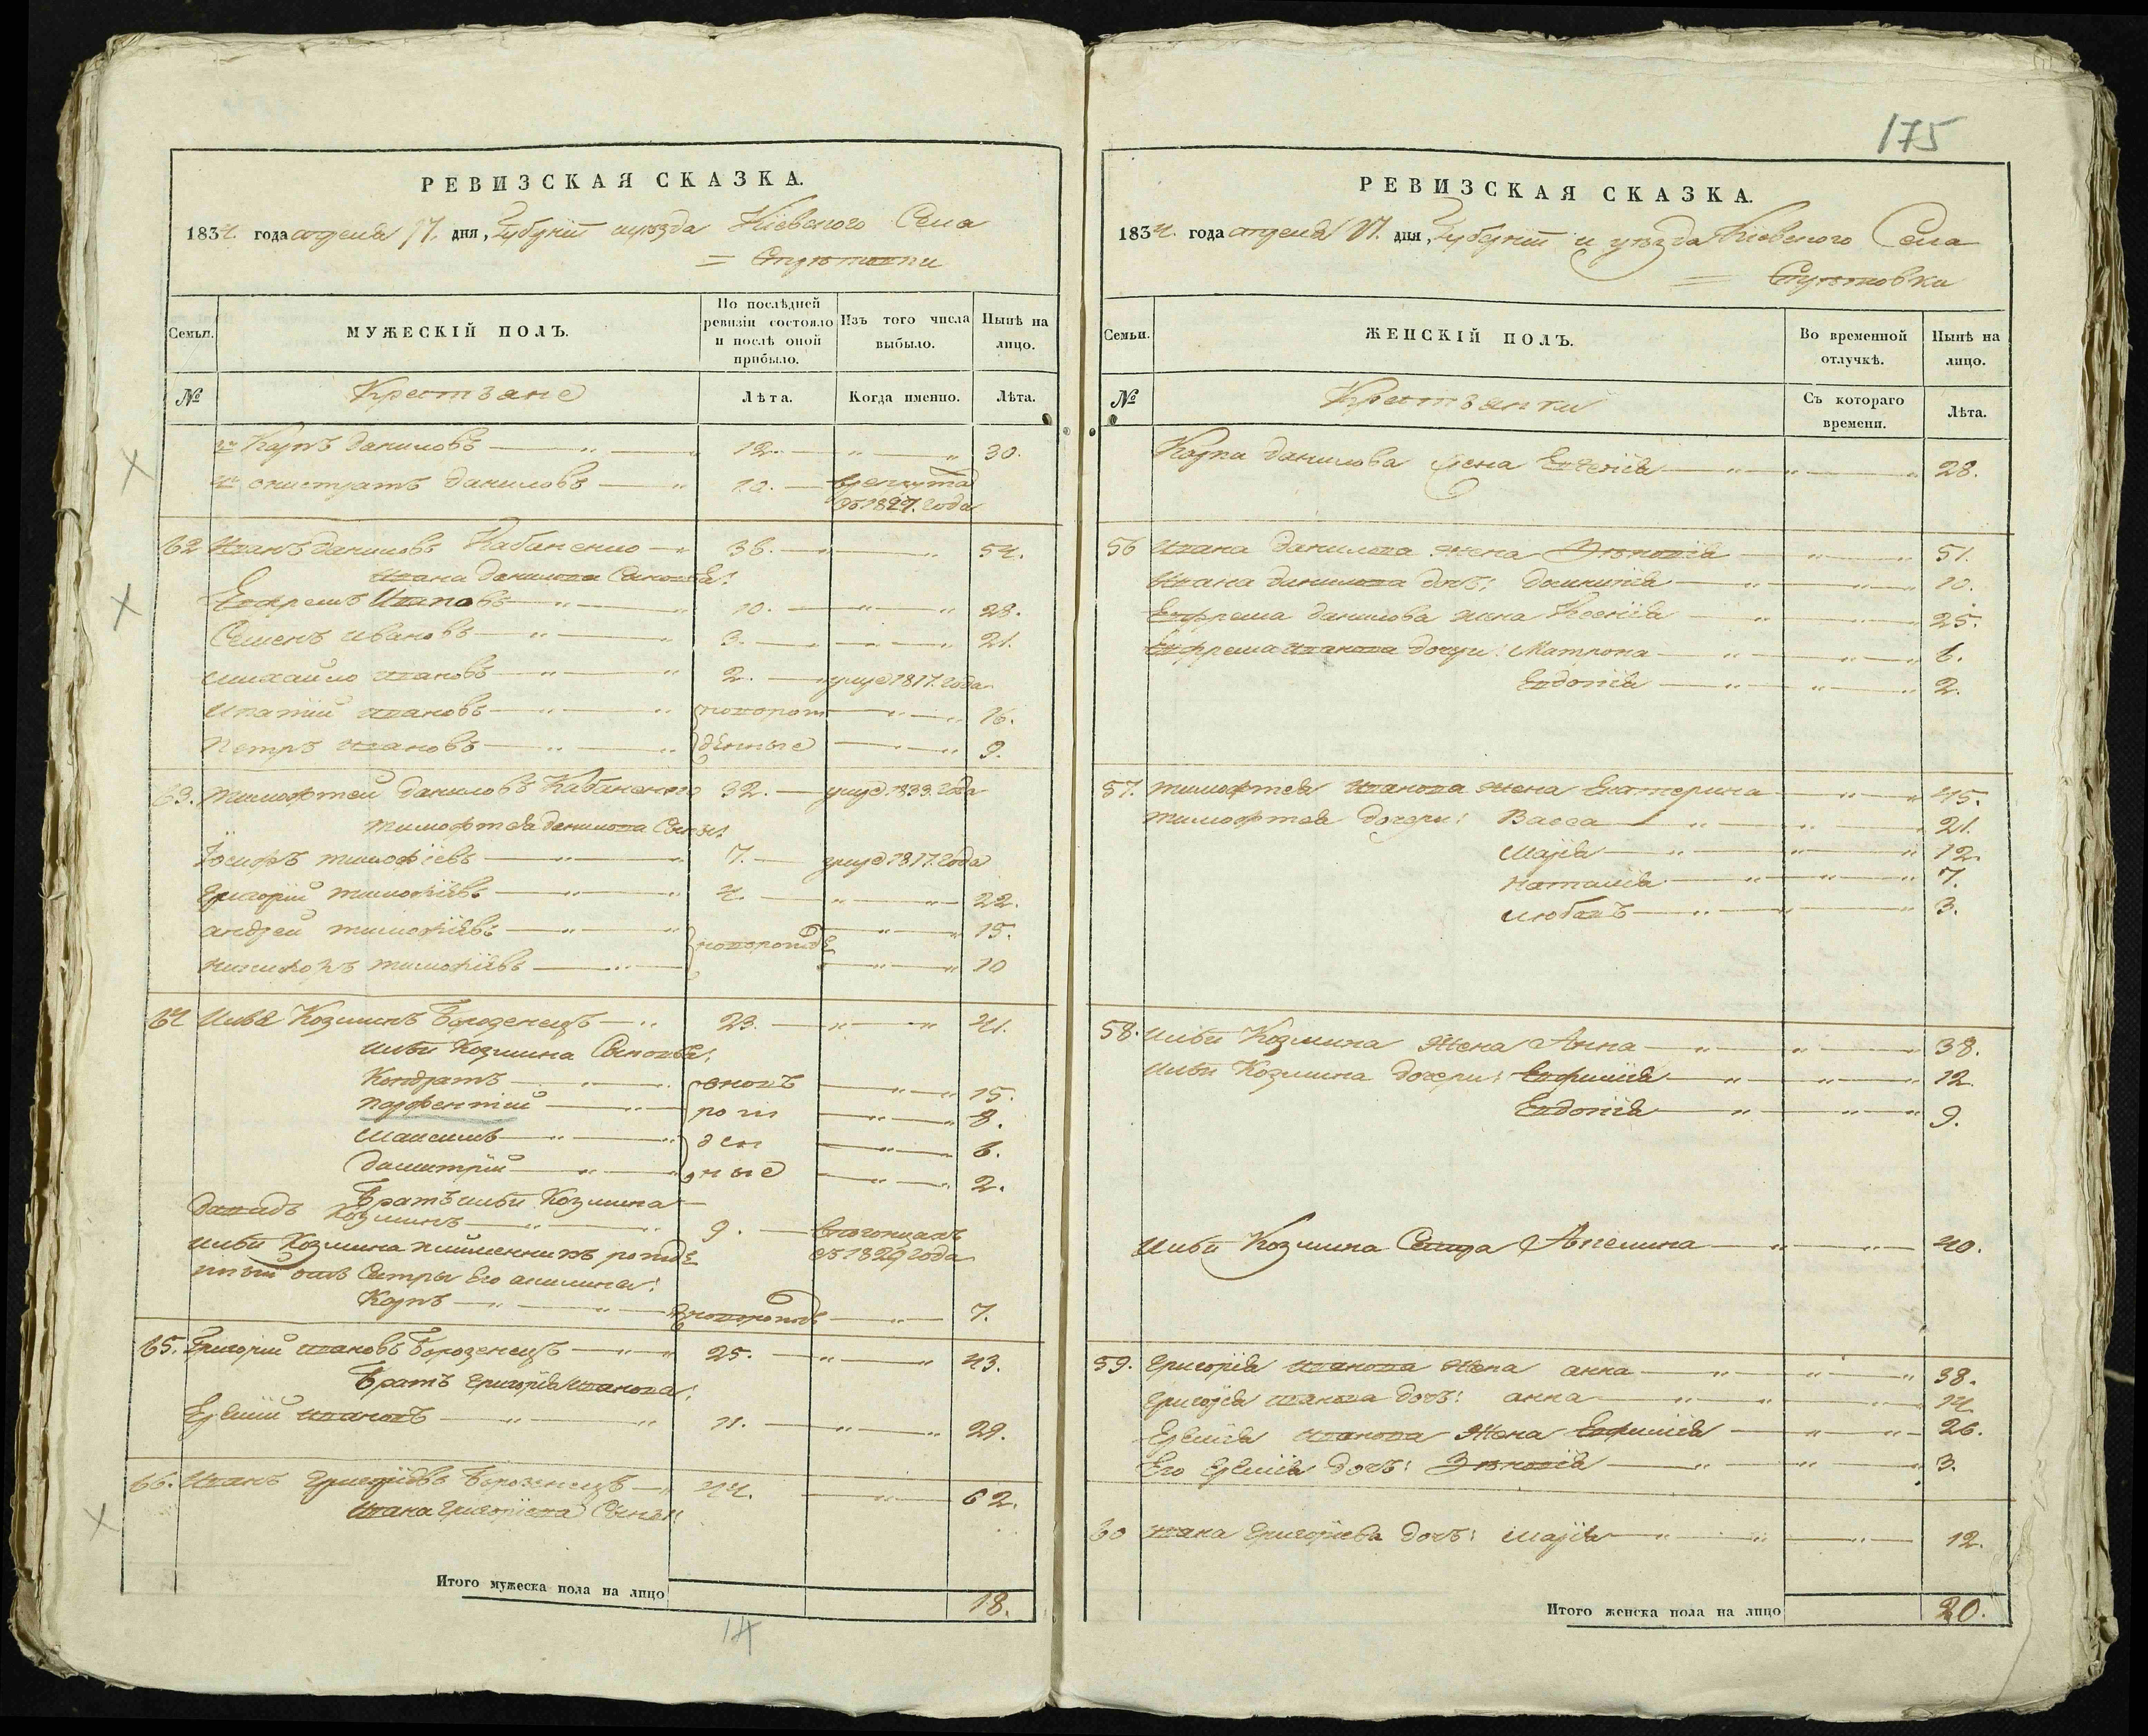 175
РЕВИЗСКАЯ СКАЗКА.
1834. года апреля 17. дня, Губернiи и уѣзда Кiевского Села
МУЖЕСКIЙ ПОЛЪ.
Семьи.
По послѣдней ревизiи состояло и послѣ оной прибыло.
Изъ того числа выбыло.
Нынѣ на лицо.
№ Крестьяне Лѣта. Когда именно. Лѣта.
Карпъ Даниловъ 12. 30.
Данилов 10. в рекрута
съ 1827. года
62 Иванъ Даниловъ Кабаненко 36. 54.
Ивана Данилова Сыновья:
Евфремъ Ивановъ 10. 28.
Семенъ Ивановъ 3. 21.
Михайло Ивановъ 2. умре 1817. года
Ипатiй Ивановъ новорож 16.
Петръ Ивановъ денные 9.
63. Тимофтей Даниловъ Кабаненко 32. умре 1833. года
Тимофтея Данилова Сыны:
Iосифъ Тимофiевъ 7. умре 1817. года
Григорiй Тимофiевъ 4. 22.
Андрей Тимофiевъ новорожде 15.
Никифоръ Тимофiевъ 10
64 Илья Козминъ Борозенецъ 23. 41.
Ильи Козмина Сыновья:
Кондратъ 15.
Парфентiй 8.
Максимъ 6.
Дмитрiй ные 2.
Братъ Ильи Козмина
Давидъ Козминъ 9.
съ 1829 года
Ильи Козмина племенникъ рожде
ный отъ Сестры Его Акилины:
Карпъ новорожде 7.
65. Григорiй Ивановъ Борозенецъ 25. 43.
Братъ Григорiя Иванова:
Ивановъ 11. 29.
66. Иванъ Григорiевъ Борозенецъ 44. 62.
Ивана Григорiева Сыны:
Итого мужеска пола на лицо 18.
14
РЕВИЗСКАЯ СКАЗКА.
1834. года апреля 17. дня, Губернiи и уѣзда Кiевского Села
ЖЕНСКIЙ ПОЛЪ.
Семьи.
Во временной отлучкѣ.
Нынѣ на лицо.
№ Крестьянки Съ котораго времени. Лѣта.
Карпа Данилова жена Евгенiя 28.
56 Ивана Данилова жена Зѣновiя 51.
Ивана Данилова дочь: Домникiя 10.
Евфрема Данилова жена Ксенiя 25.
Евфрема Иванова дочери: Матрона 6.
Евдокiя 2.
57. Тимофтея Иванова жена Екатерина 45.
Тимофтея дочери: Васса 21.
Марiя 12.
Наталiя 7.
Любовъ 3.
58. Ильи Козмина жена Анна 38.
Ильи Козмина дочери: Евфимiя 12.
Евдокiя 9.
Ильи Козмина Сестра Акелина 40.
59. Григорiя Иванова жена Анна 38.
Григорiя Иванова дочь: Анна 14.
Иванова жена Евфимiя 26.
Его дочь: Зѣновiя 3.
60 Ивана Григорiева дочь: Марiя 12.
Итого женска пола на лицо 20.